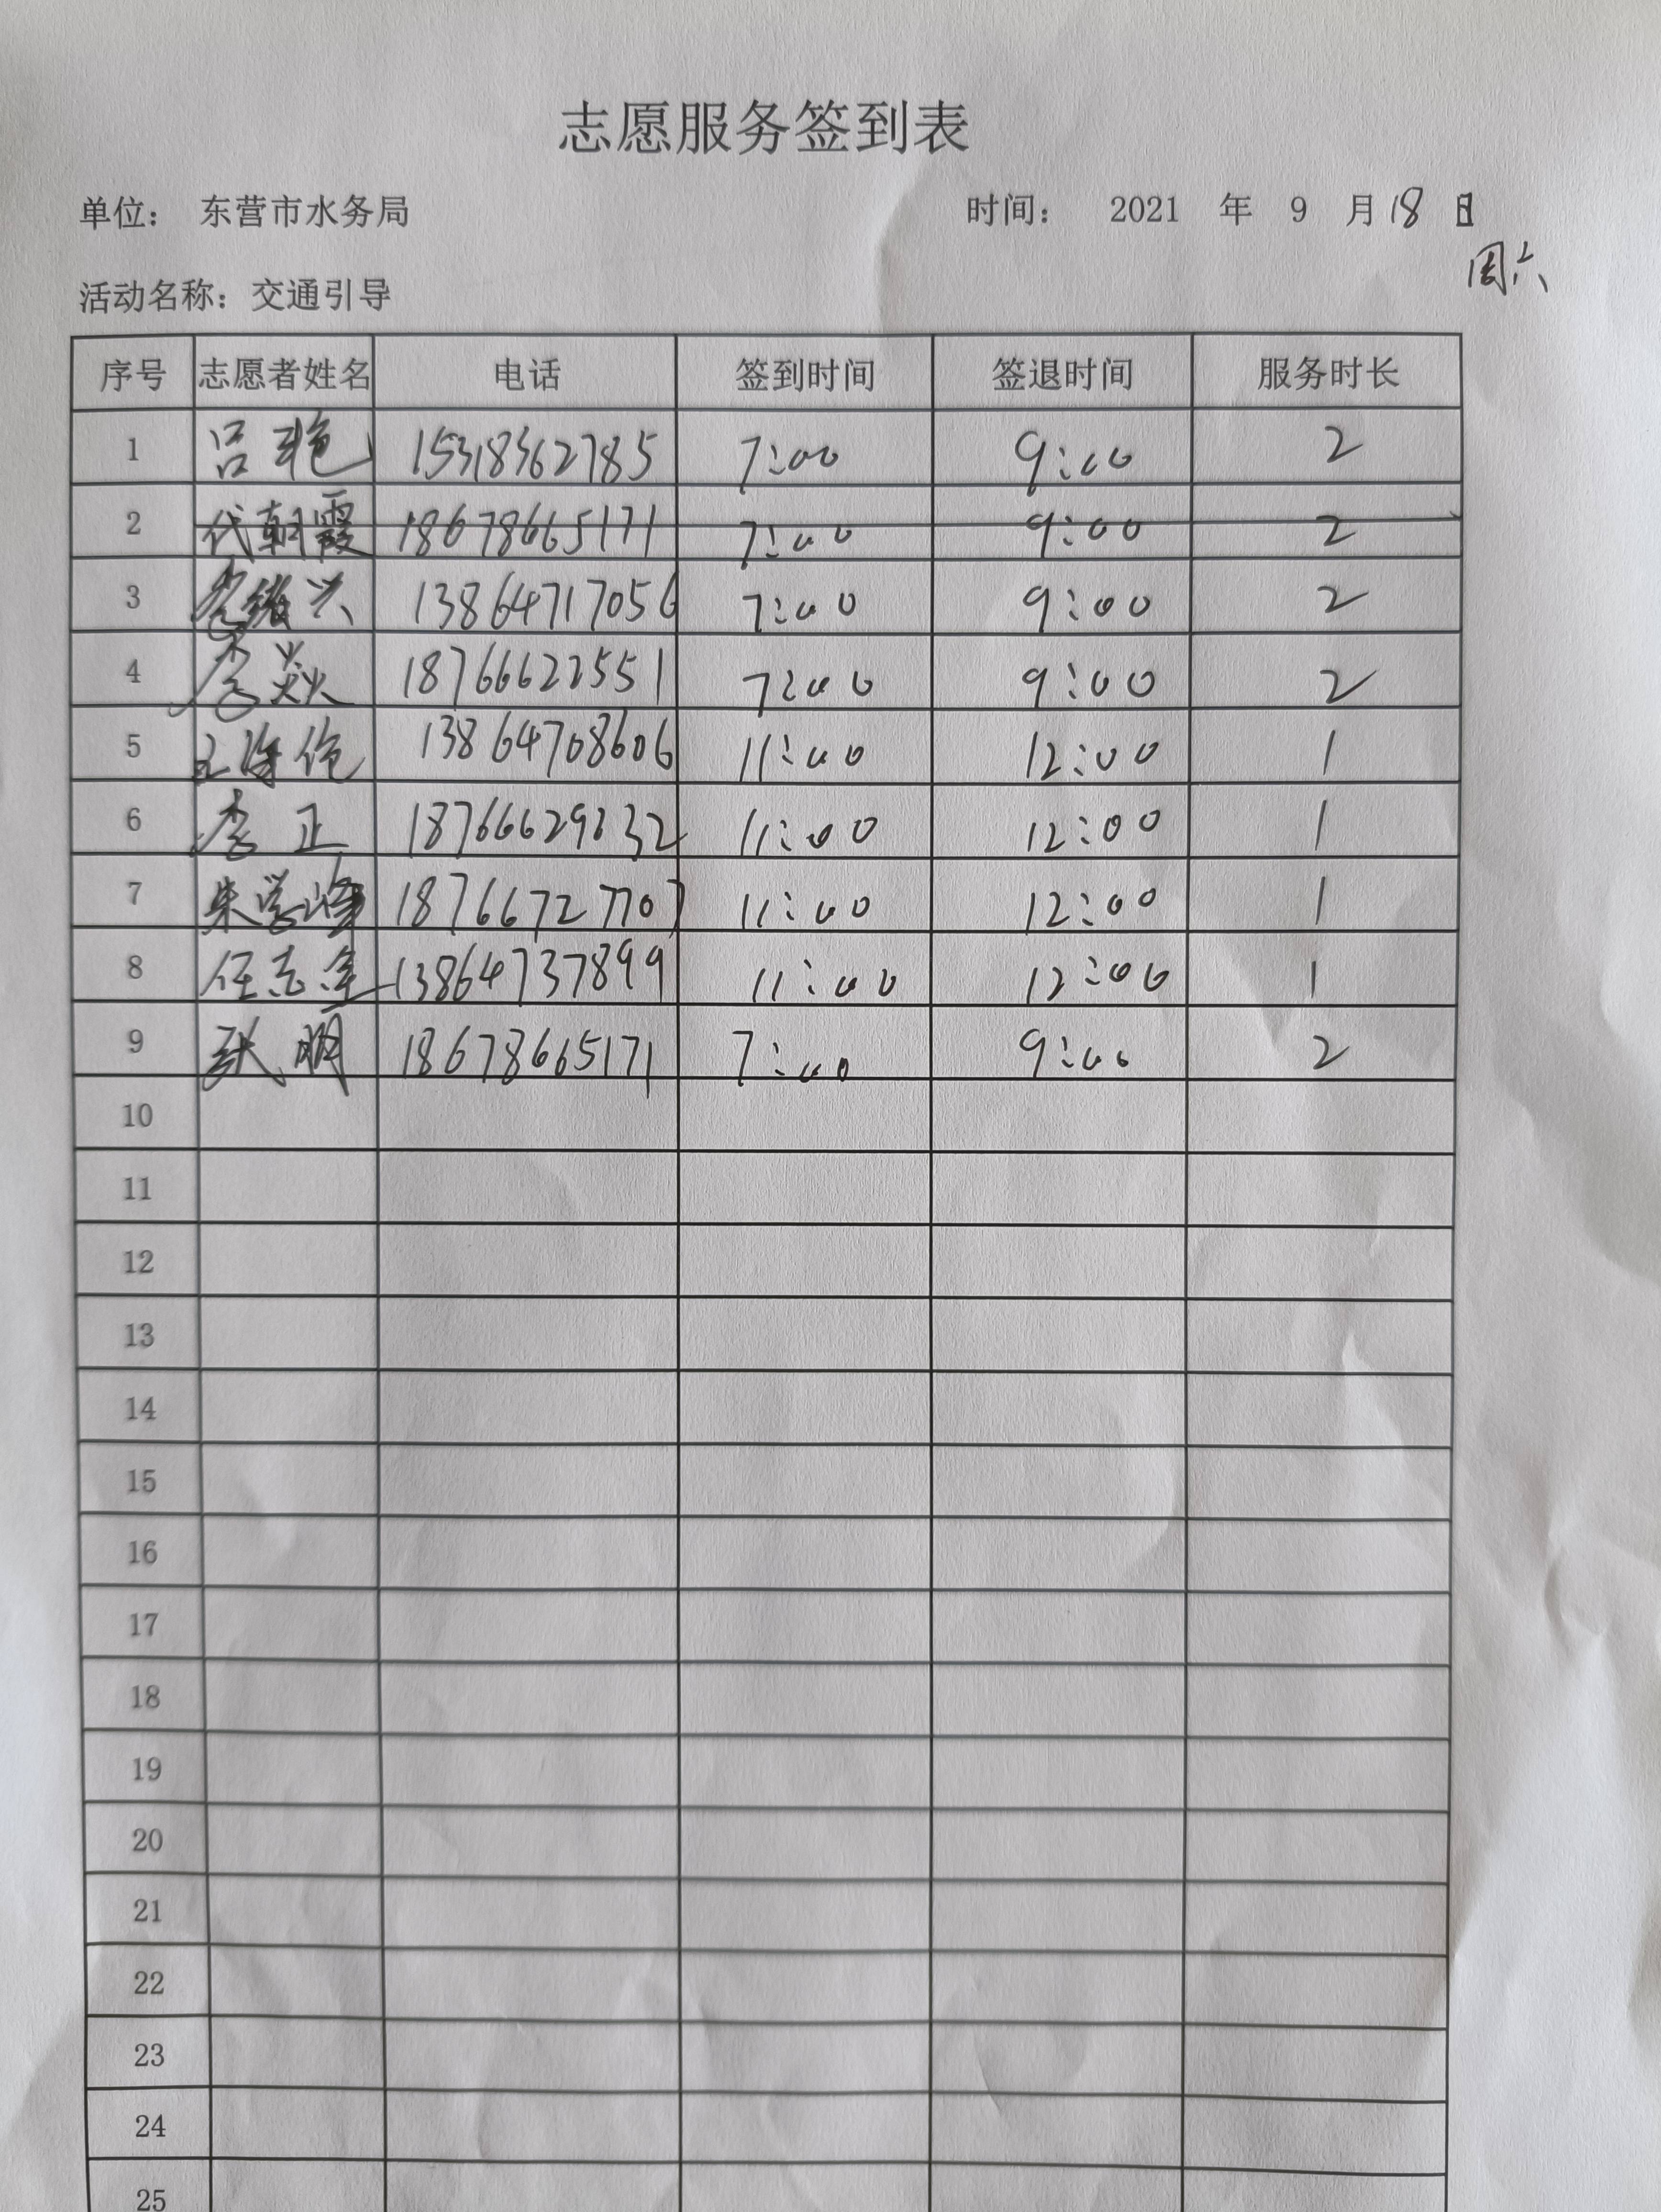 志愿服务签到表
单位： 东营市水务局 时间： 2021 年 9 月 18 日
周六
活动名称：交通引导
序号 志愿者姓名 电话 签到时间 签退时间 服务时长
1 吕艳 15318362785 7:00 9:00 2
2 代朝霞 18678665171 7:00 9:00 2
3 兴 13864717056 7:00 9:00 2
4 李焱 18766622551 7:00 9:00 2
5 13864708606 11:00 12:00 1
6 李正 11:00 12:00 1
7 朱学峰 18766727707 11:00 12:00 1
8 任志 13864737899 11:00 12:00 1
9 张明 18678665171 7:00 9:00 2
10
11
12
13
14
15
16
17
18
19
20
21
22
23
24
25